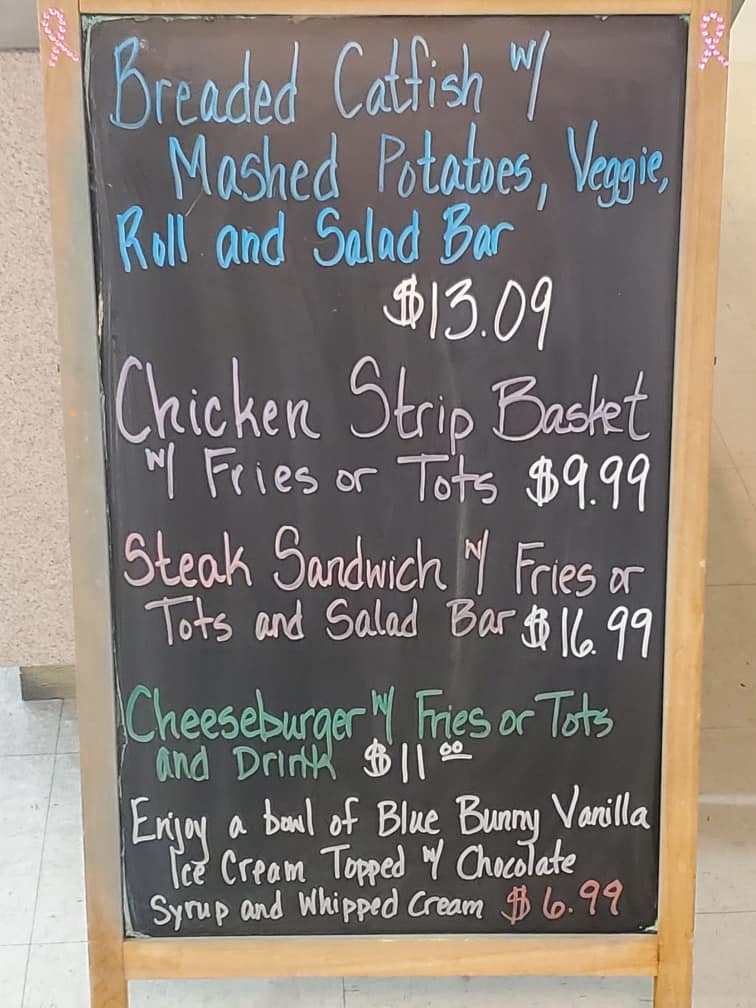 Breaded Catfish w/
Mashed Potatoes, Veggie,
Roll and Salad Bar
$13.09
Chicken Strip Basket
w/ Fries or Tots $9.99
Steak Sandwich w/ Fries or
Tots and Salad Bar $16.99
Cheeseburger w/ Fries or Tots
and Drink $11 00
Enjoy a bowl of Blue Bunny Vanilla
Ice Cream Topped w/ Chocolate
Syrup and Whipped Cream $6.99